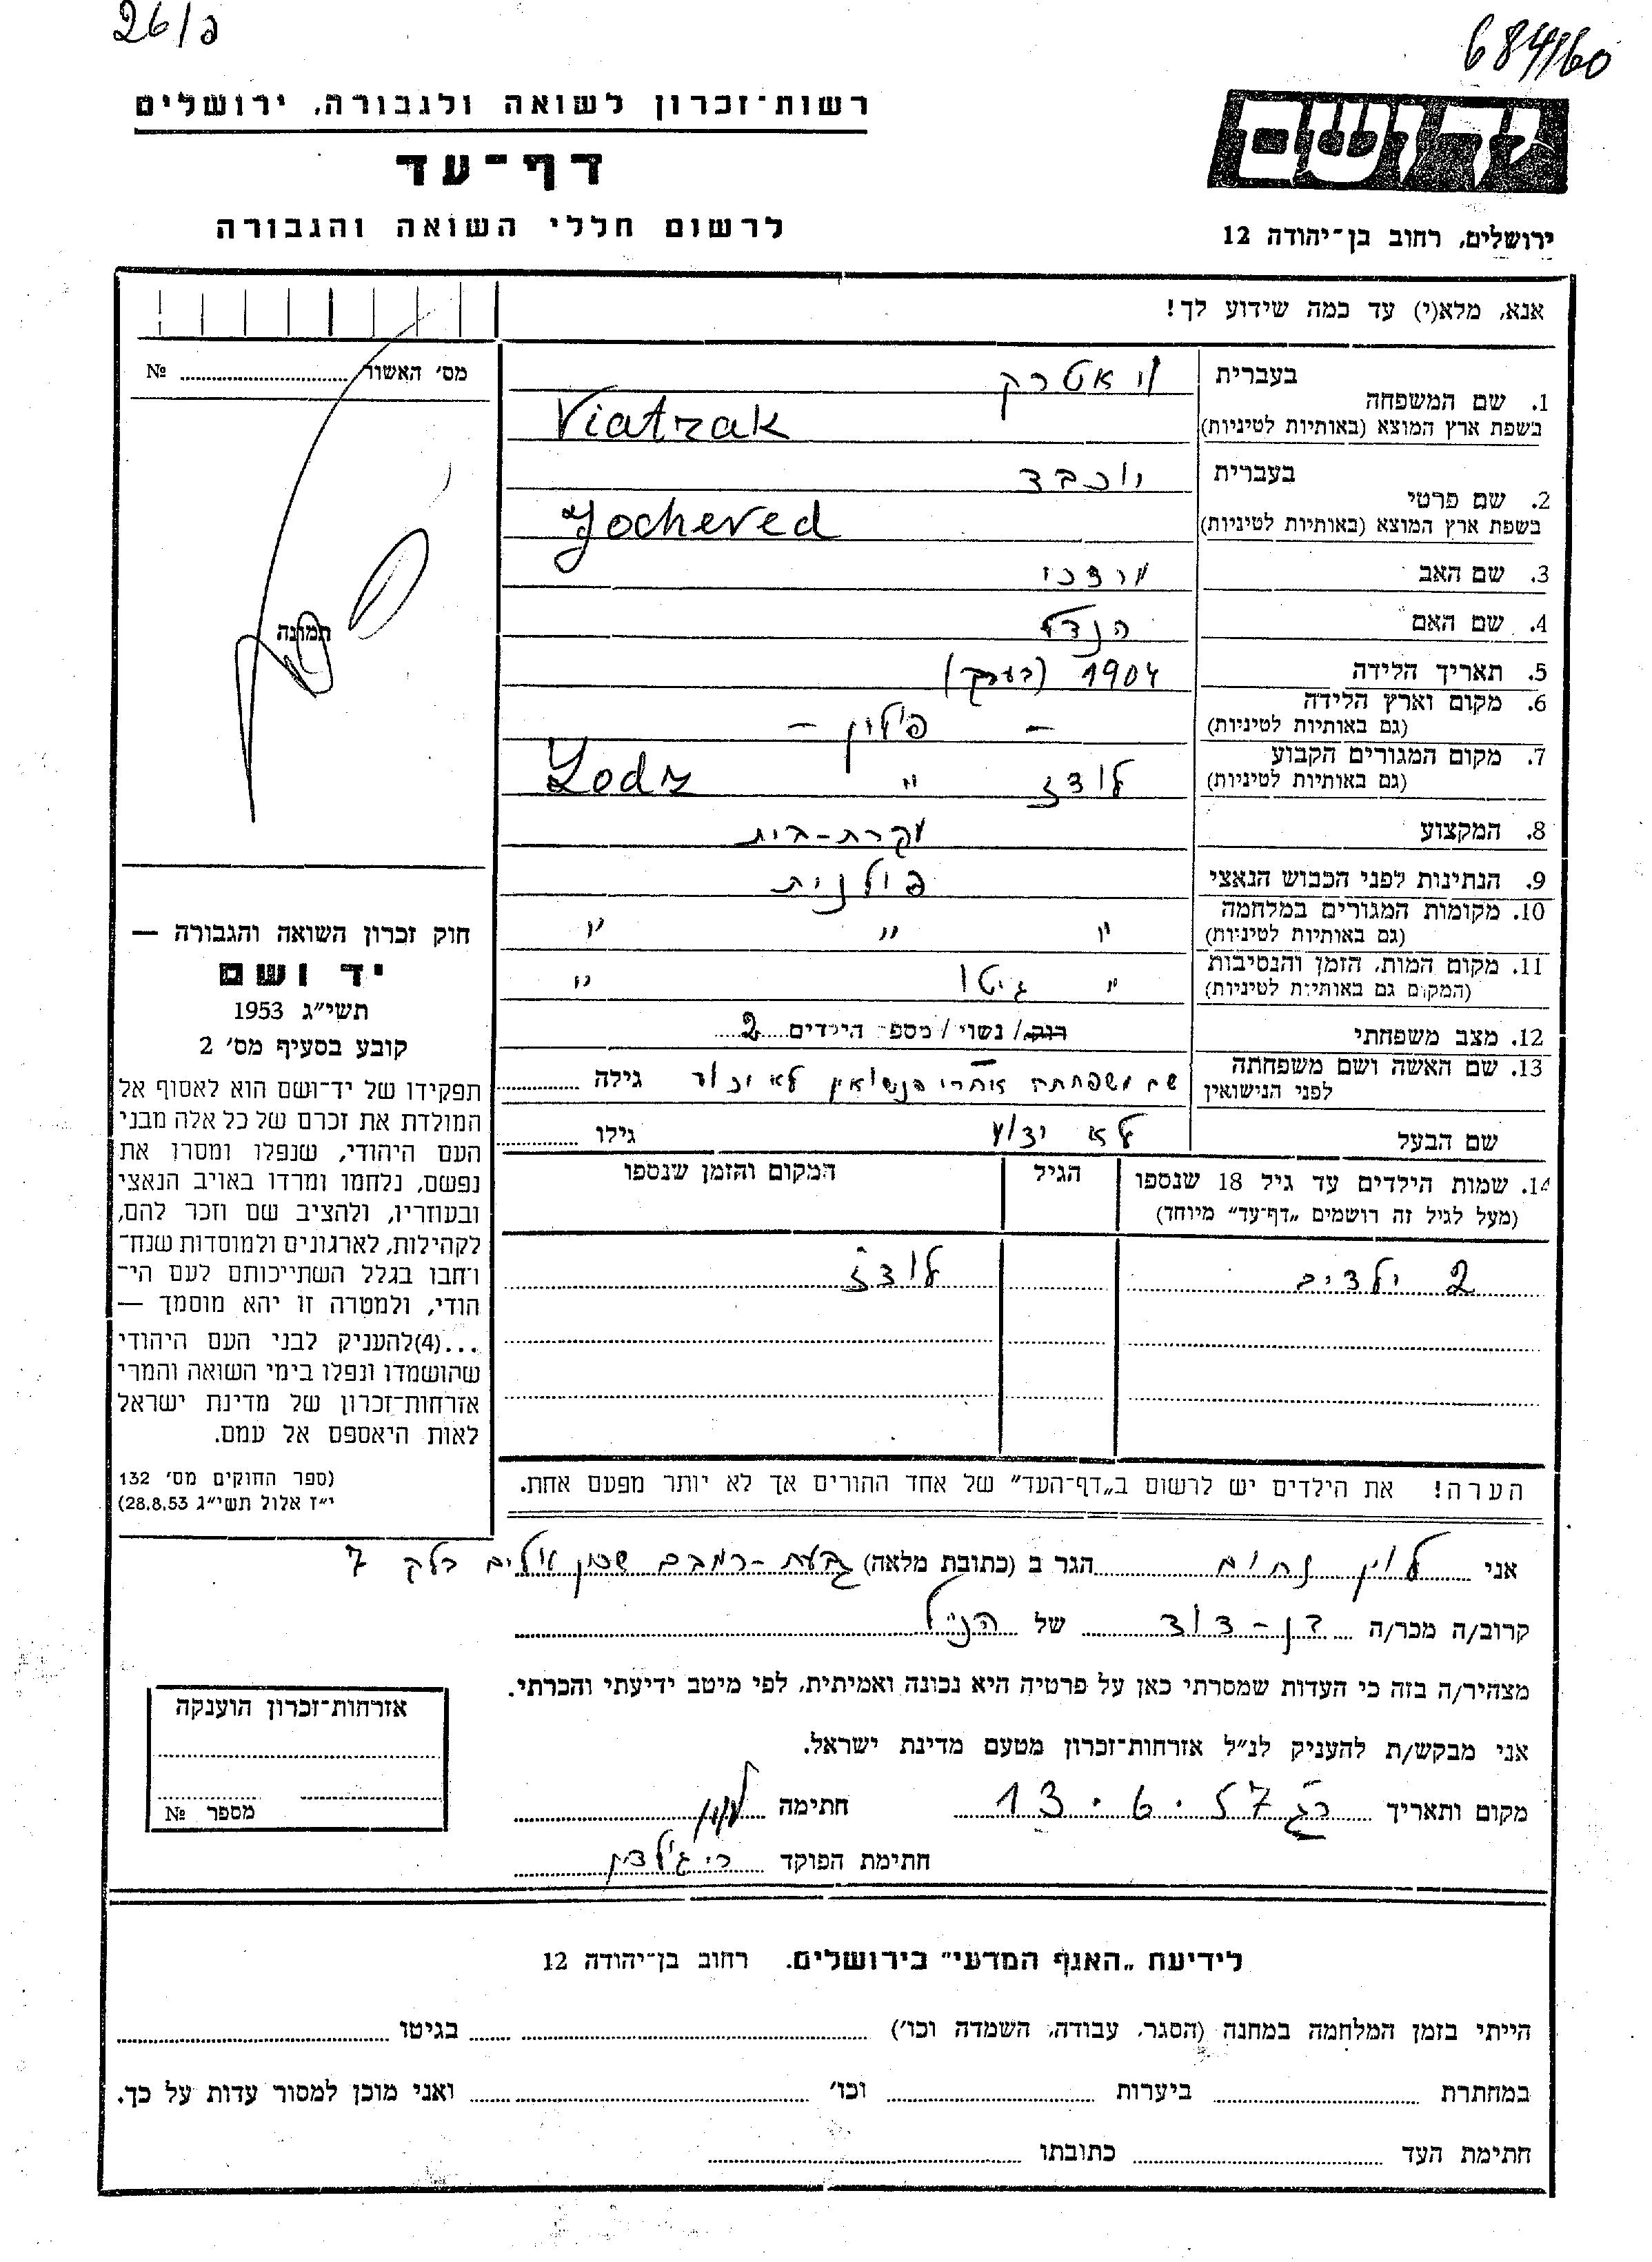 26/כ
684/60
רשות־זכרון לשואה ולגבורה, ירושלים
דף־עד
לרשום חללי השואה והגבורה
יד ושם
ירושלים, רחוב בן־יהודה 12
אנא, מלא(י) עד כמה שידוע לך!
מס׳ האשור № 
1. שם המשפחה בעברית ויאטרק
בשפת ארץ המוצא (באותיות לטיניות) Viatrak
2. שם פרטי בעברית יוכבד
בשפת ארץ המוצא (באותיות לטיניות) Yocheved
3. שם האב מרדכי
4. שם האם הנדל
5. תאריך הלידה 1904 (בערך)
6. מקום וארץ הלידה (גם באותיות לטיניות) – פולין –
7. מקום המגורים הקבוע (גם באותיות לטיניות) לודז " Lodz
8. המקצוע עקרת-בית
9. הנתינות לפני הכבוש הנאצי פולנית
10. מקומות המגורים במלחמה (גם באותיות לטיניות) " " "
11. מקום המות, הזמן והנסיבות (המקום גם באותיות לטיניות) " גיטו "
12. מצב משפחתי רווק/ נשוי/ מספר הילדים 2
13. שם האשה ושם משפחתה לפני הנישואין שם משפחתה אחרי הנשואין לא זכור גילה
שם הבעל לא ידוע גילו
14. שמות הילדים עד גיל 18 שנספו הגיל המקום והזמן שנספו
(מעל לגיל זה רושמים „דף־עד״ מיוחד)
2 ילדים לודז
הערה! את הילדים יש לרשום ב„דף־העד״ של אחד ההורים אך לא יותר מפעם אחת.
תמונה
חוק זכרון השואה והגבורה —
יד ושם
תשי״ג 1953
קובע בסעיף מס׳ 2
תפקידו של יד־ושם הוא לאסוף אל
המולדת את זכרם של כל אלה מבני
העם היהודי, שנפלו ומסרו את
נפשם, נלחמו ומרדו באויב הנאצי
ובעוזריו, ולהציב שם וזכר להם,
לקהילות, לארגונים ולמוסדות שנח־
רבו בגלל השתייכותם לעם הי־
הודי, ולמטרה זו יהא מוסמך —
...(4)להעניק לבני העם היהודי
שהושמדו ונפלו בימי השואה והמרי
אזרחות־זכרון של מדינת ישראל
לאות היאספם אל עמם.
(ספר החוקים מס׳ 132
י״ז אלול תשי״ג 28.8.53)
אני לוין נחום הגר ב (כתובת מלאה) גבעת-רמבם שכון עולים בלק 7
קרוב/ה מכר/ה בן-דוד של הנ״ל
מצהיר/ה בזה כי העדות שמסרתי כאן על פרטיה היא נכונה ואמיתית, לפי מיטב ידיעתי והכרתי.
אני מבקש/ת להעניק לנ״ל אזרחות־זכרון מטעם מדינת ישראל.
מקום ותאריך רג 13.6.57 חתימה לוין
חתימת הפוקד
אזרחות־זכרון הוענקה
מספר №
לידיעת „האגף המדעי״ בירושלים. רחוב בן־יהודה 12
הייתי בזמן המלחמה במחנה (הסגר, עבודה, השמדה וכו׳) בגיטו
במחתרת ביערות וכו׳ ואני מוכן למסור עדות על כך.
חתימת העד כתובתו